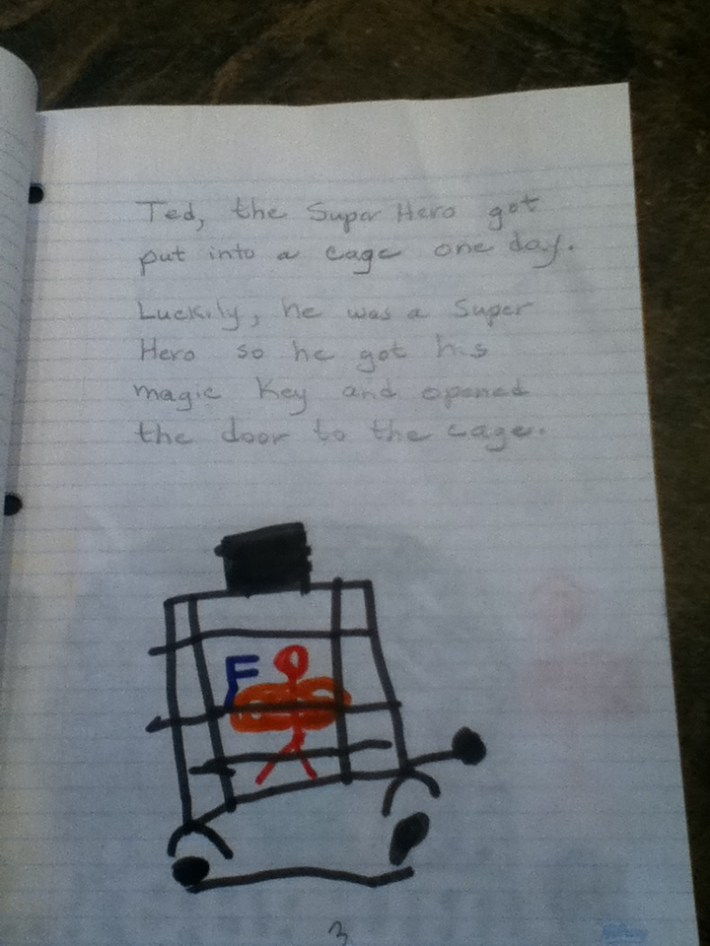 Ted, the Super Hero got
put into a cage one day.
Luckily, he was a Super
Hero so he got his
magic key and opened
the door to the cage.
F
3